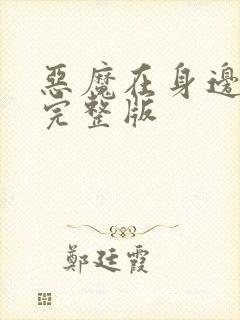 惡魔在身邊
完整版
鄭廷霞